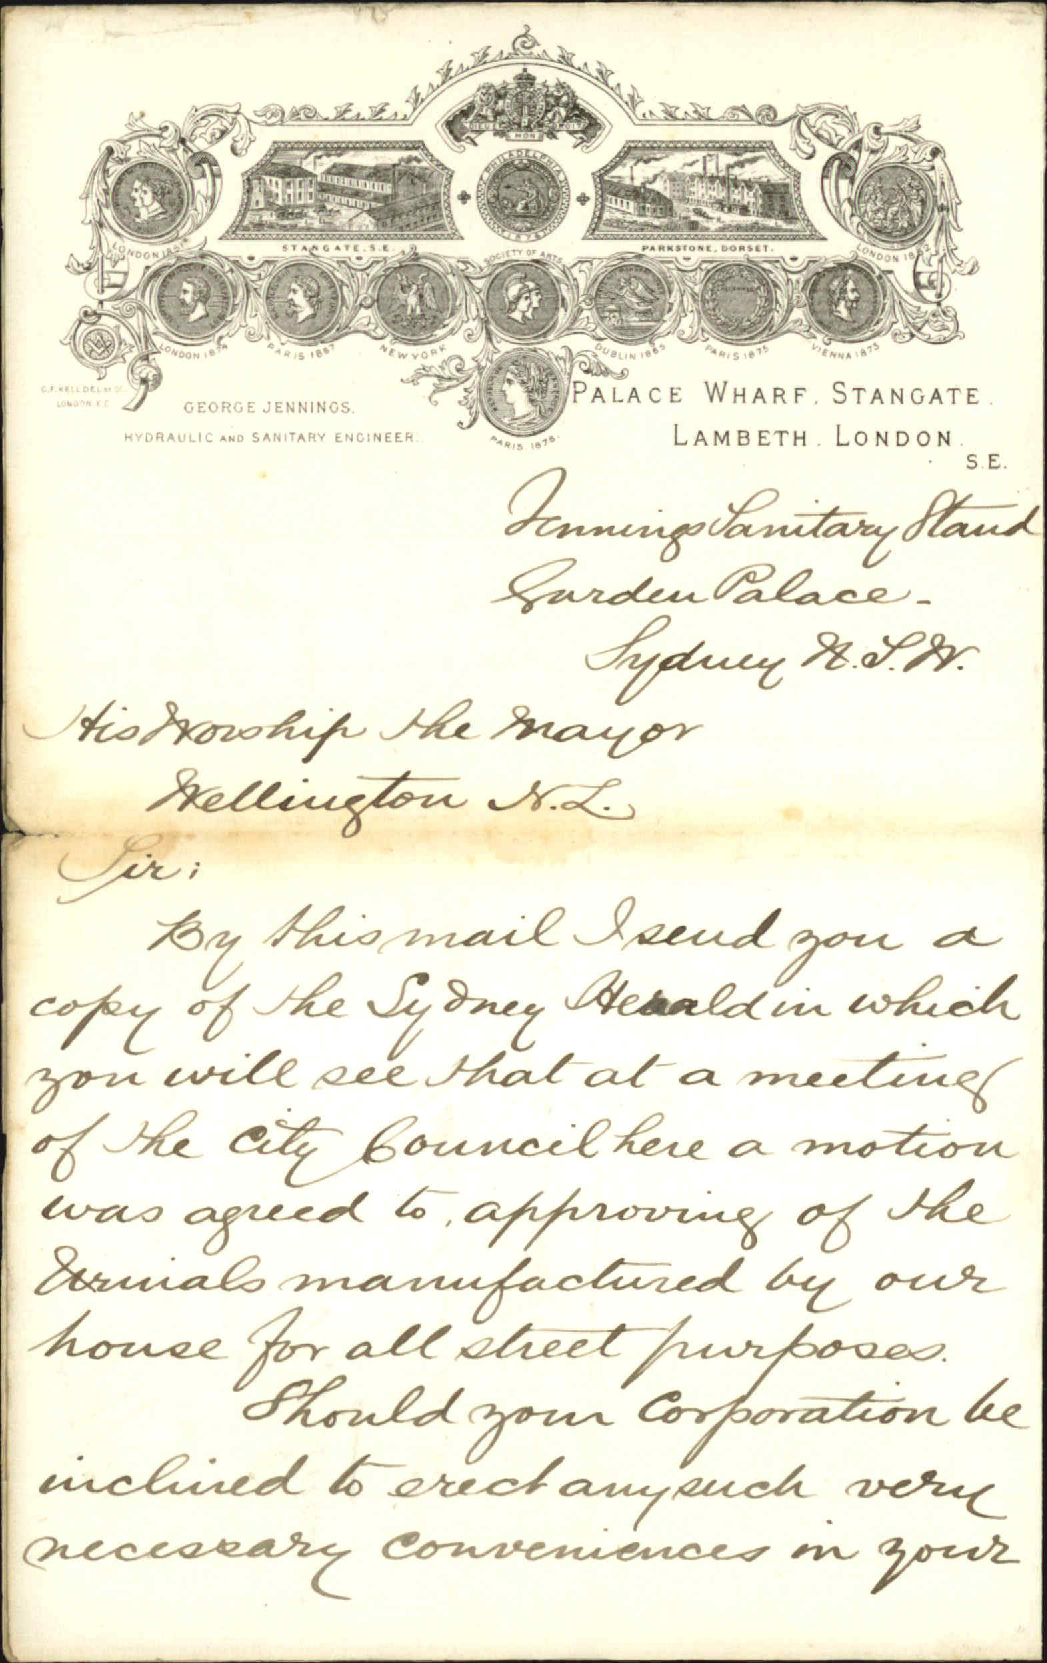 DIEU ET MON DROIT
PHILADELPHIA
1876
STANGATE. S.E.
PARKSTONE, DORSET.
LONDON 1851
SOCIETY OF ARTS
LONDON 1862
LONDON 1874
PARIS 1867
NEW YORK
DUBLIN 1865
PARIS 1875
VIENNA 1873
PARIS. 1878.
LONDON. E.C.
GEORGE JENNINGS.
HYDRAULIC AND SANITARY ENGINEER.
PALACE WHARF. STANGATE.
LAMBETH. LONDON.
S.E.
Jennings Sanitary Stand
Garden Palace -
Sydney N.S.W.
His Worship the Mayor
Wellington N.Z.
Sir:
By this mail I send you a
copy of the Sydney Herald in which
you will see that at a meeting
of the City Council here a motion
was agreed to, approving of the
Urinals manufactured by our
house for all street purposes.
Should your Corporation be
inclined to erect any such very
necessary conveniences in your